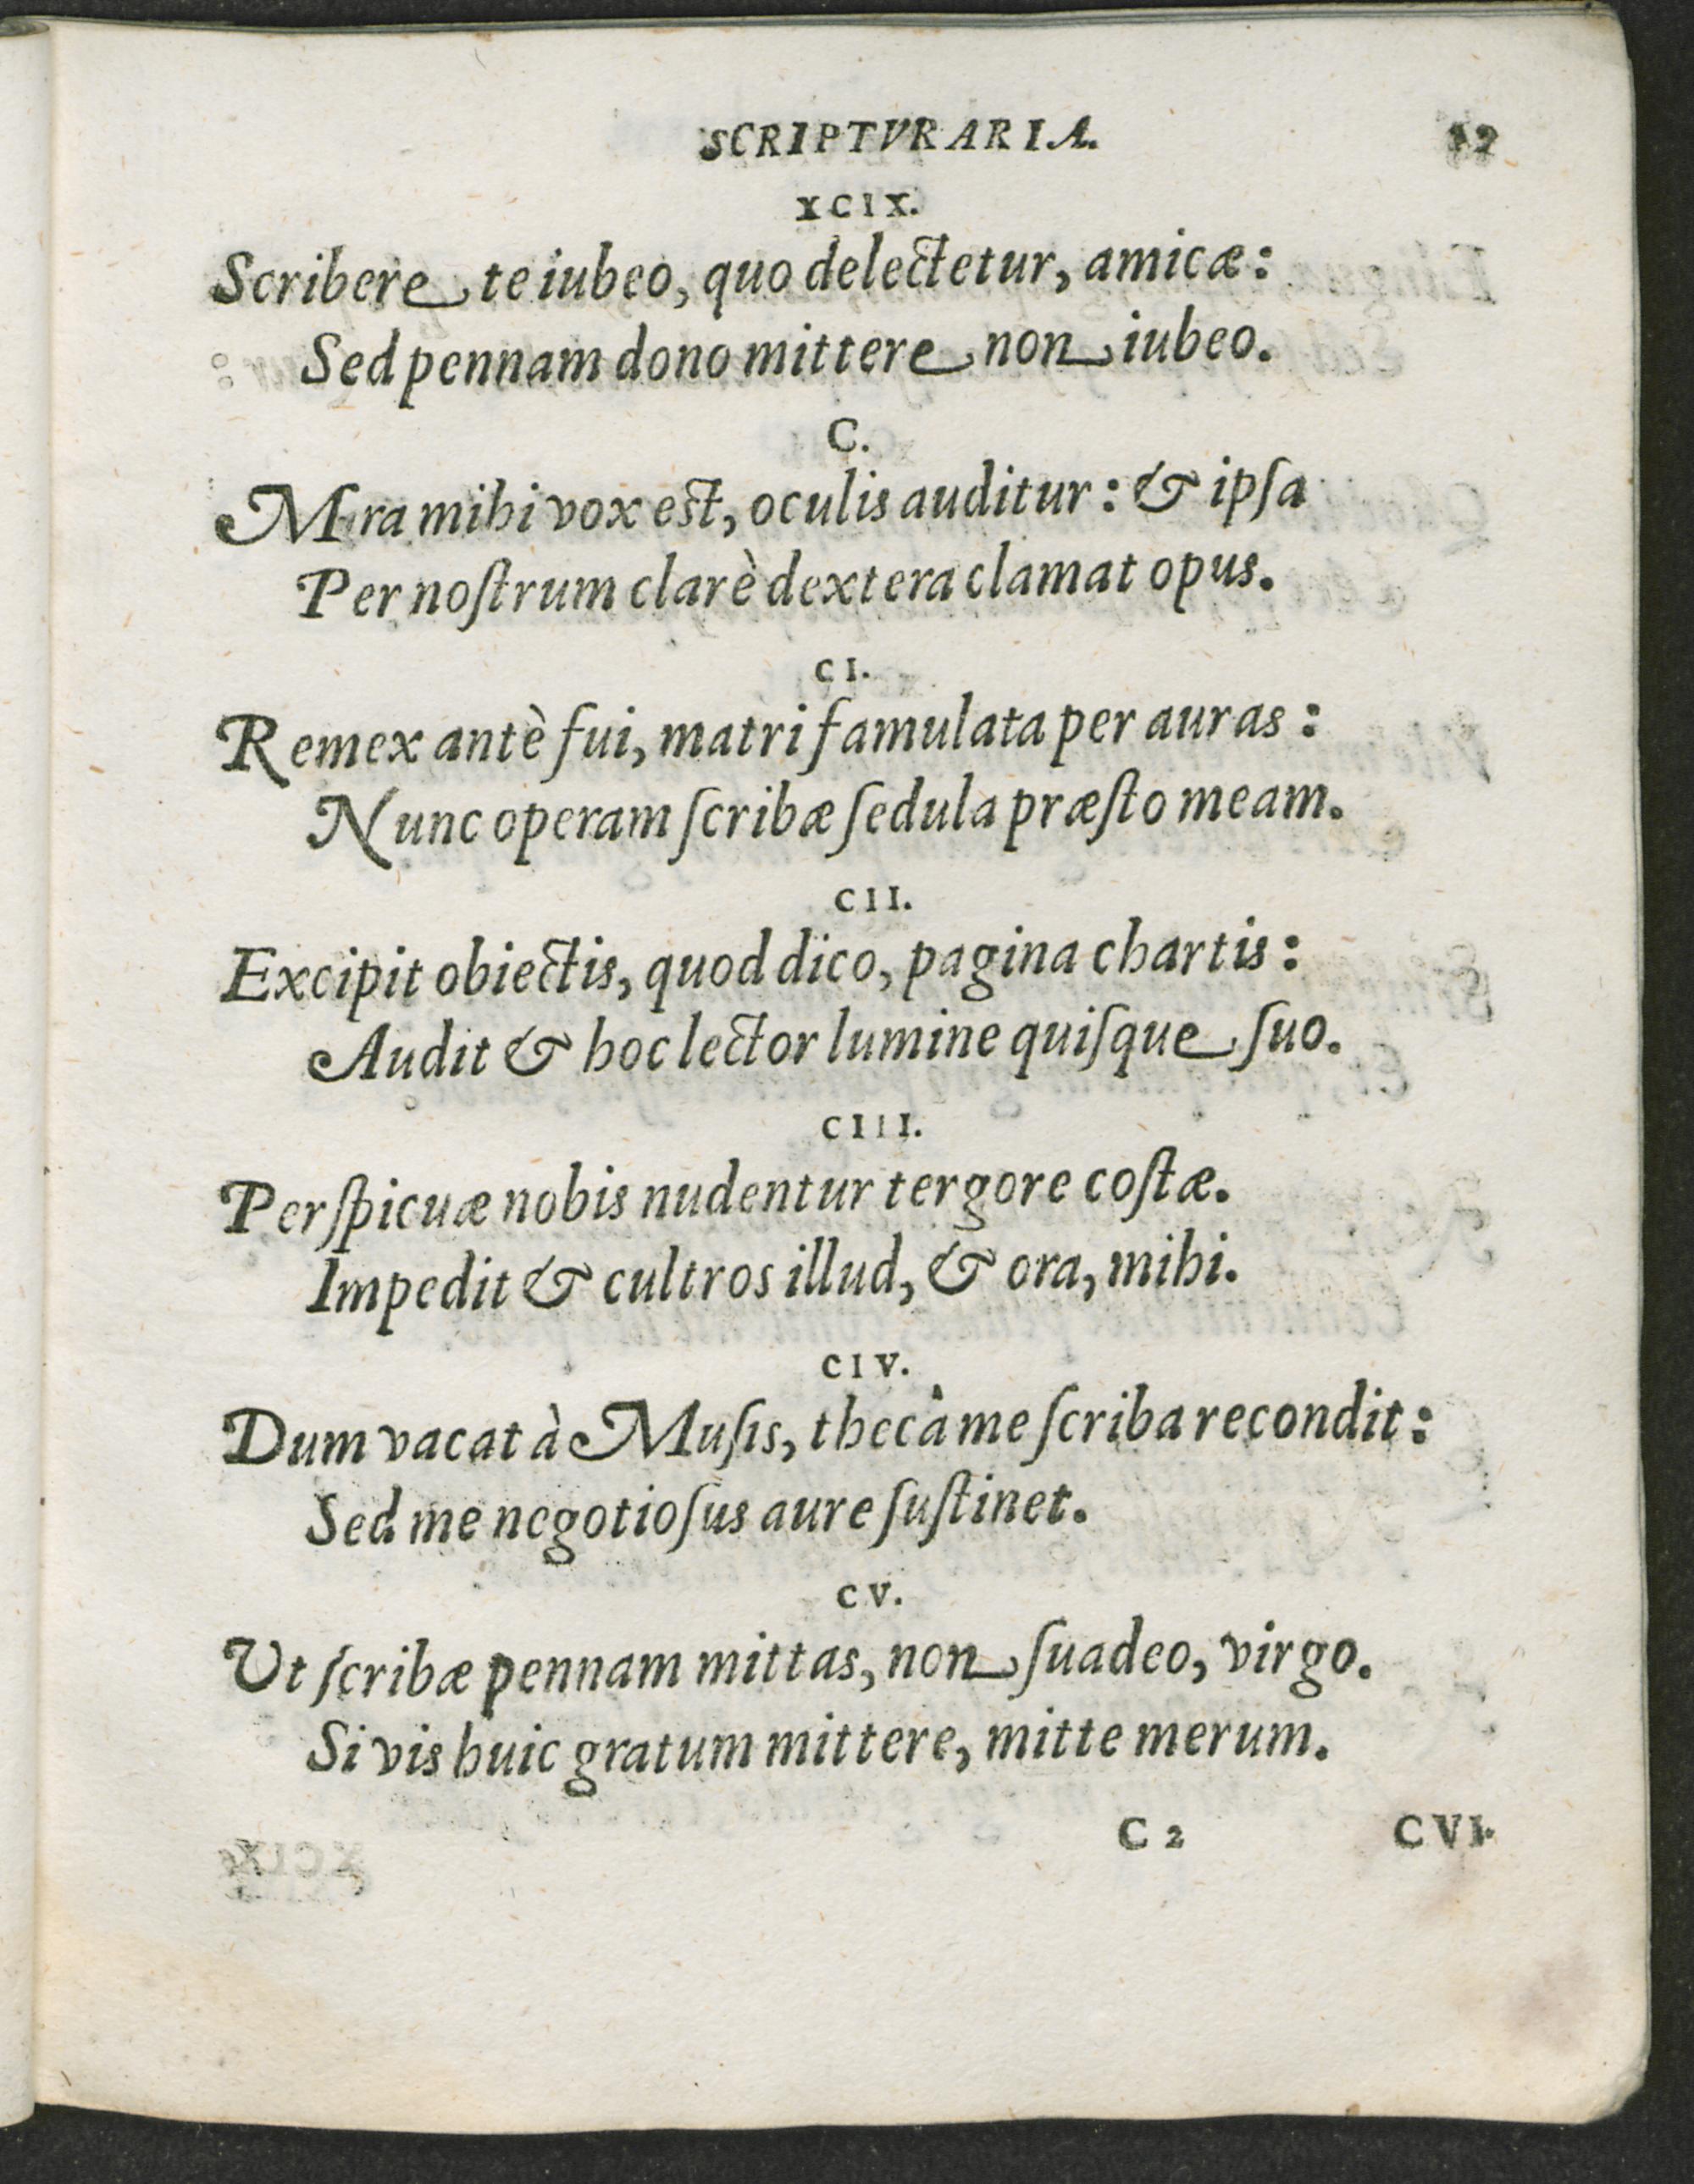 SCRIPTVRARIA.
XCIX.
Scribere te iubeo, quo delectetur, amicæ:
Sed pennam dono mittere non iubeo.
C.
Mira mihi vox est, oculis auditur: & ipſa
Per noſtrum clarè dextera clamat opus.
CI.
Remex antè fui, matri famulata per auras:
Nunc operam ſcribæ ſedula præſto meam.
CII.
Excipit obiectis, quod dico, pagina chartis:
Audit & hoc lector lumine quiſque ſuo.
CIII.
Perſpicuæ nobis nudentur tergore coſtæ.
Impedit & cultros illud, & ora, mihi.
CIV.
Dum vacat à Muſis, thecâ me ſcriba recondit:
Sed me negotioſus aure ſuſtinet.
CV.
Ut ſcribæ pennam mittas, non ſuadeo, virgo.
Si vis huic gratum mittere, mitte merum.
C 2 CVI.